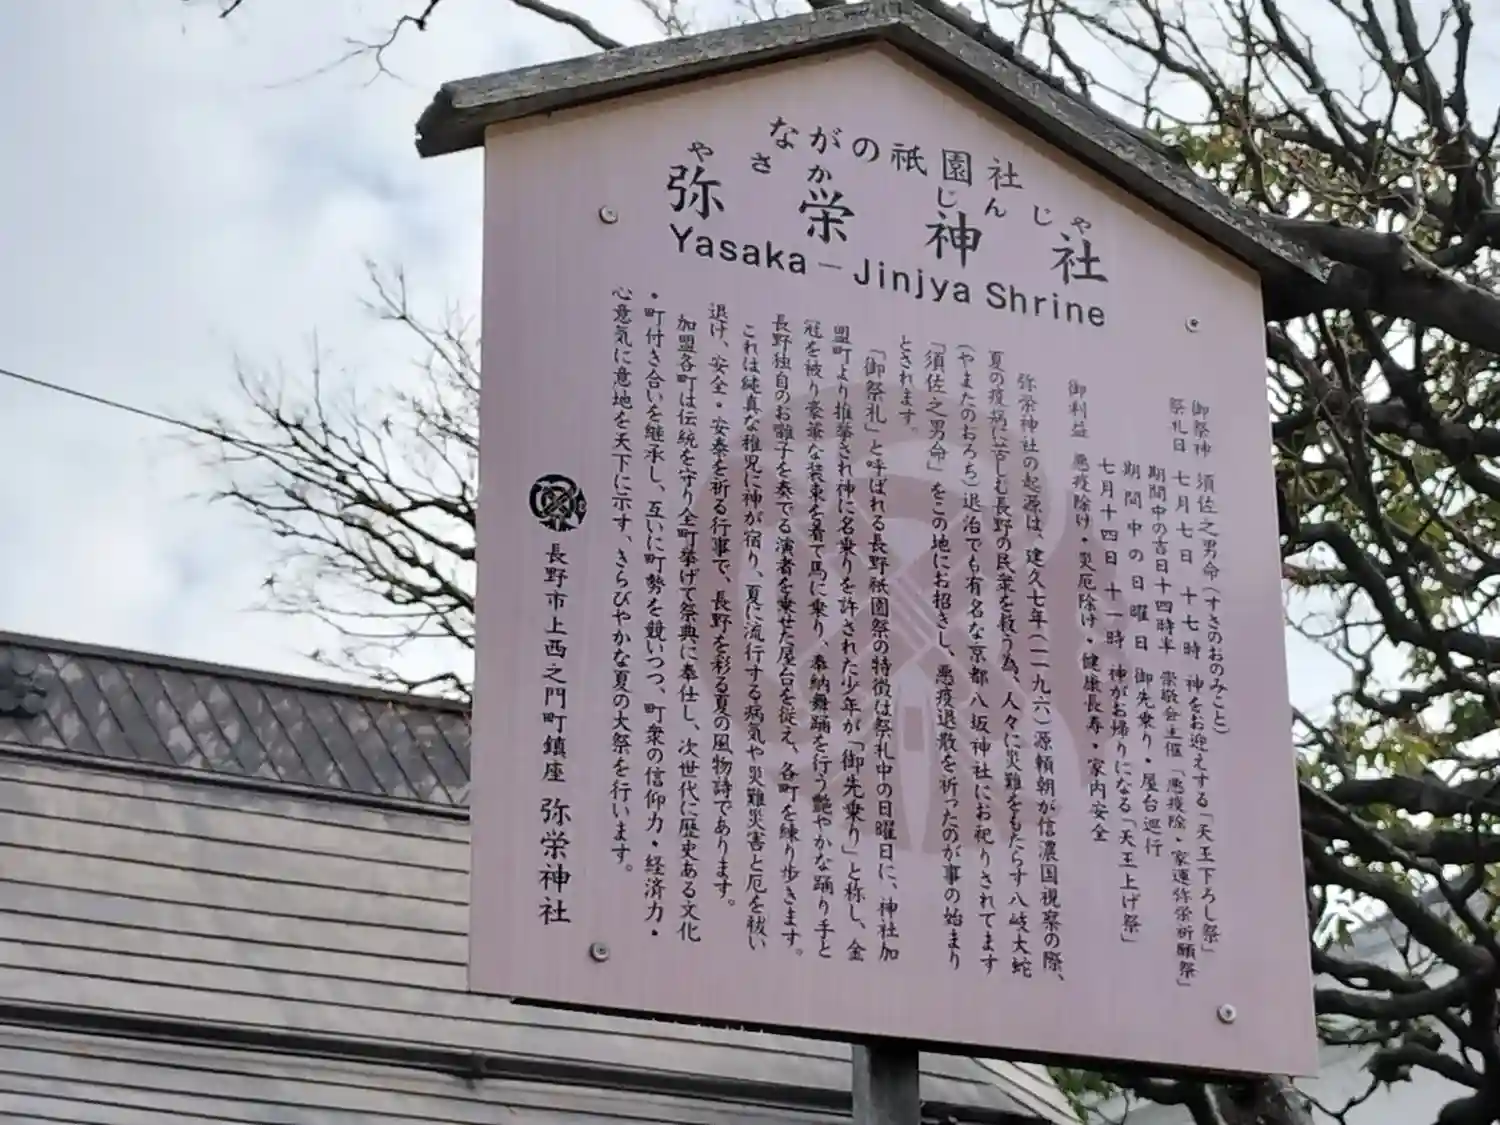 ながの祇園社
やさかじんじゃ
弥栄神社
Yasaka－Jinjya Shrine
御祭神　須佐之男命（すさのおのみこと）
祭礼日　七月七日　十七時　神をお迎えする「天王下ろし祭」
期間中の吉日十四時半　崇敬会主催「悪疫除・家運弥栄祈願祭」
期間中の日曜日　御先乗り・屋台巡行
七月十四日　十一時　神がお帰りになる「天王上げ祭」
御利益　悪疫除け・災厄除け・健康長寿・家内安全
弥栄神社の起源は、建久七年（一一九六）源頼朝が信濃国視察の際、
夏の疫病に苦しむ長野の民衆を救う為、人々に災難をもたらす八岐大蛇
（やまたのおろち）退治でも有名な京都八坂神社にお祀りされてます
「須佐之男命」をこの地にお招きし、悪疫退散を祈ったのが事の始まり
とされます。
「御祭礼」と呼ばれる長野祇園祭の特徴は祭礼中の日曜日に、神社加
盟町より推挙され神に名乗りを許された少年が「御先乗り」と称し、金
冠を被り豪華な装束を着て馬に乗り、奉納舞踊を行う艶やかな踊り手と
長野独自のお囃子を奏でる演者を乗せた屋台を従え、各町を練り歩きます。
これは純真な稚児に神が宿り、夏に流行する病気や災難災害と厄を祓い
退け、安全・安泰を祈る行事で、長野を彩る夏の風物詩であります。
加盟各町は伝統を守り全町挙げて祭典に奉仕し、次世代に歴史ある文化
・町付き合いを継承し、互いに町勢を競いつつ、町衆の信仰力・経済力・
心意気に意地を天下に示す、きらびやかな夏の大祭を行います。
長野市上西之門町鎮座　弥栄神社